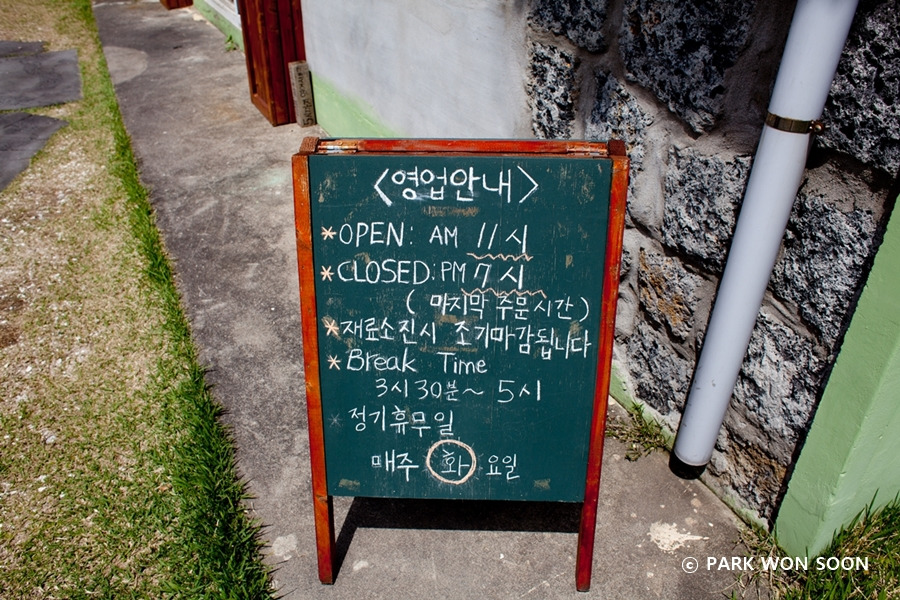 <영업안내>
*OPEN: AM 11시
*CLOSED: PM 7시
(마지막 주문시간)
*재료소진시 조기마감됩니다
*Break Time
3시30분~ 5시
*정기휴무일
매주 화 요일
© PARK WON SOON